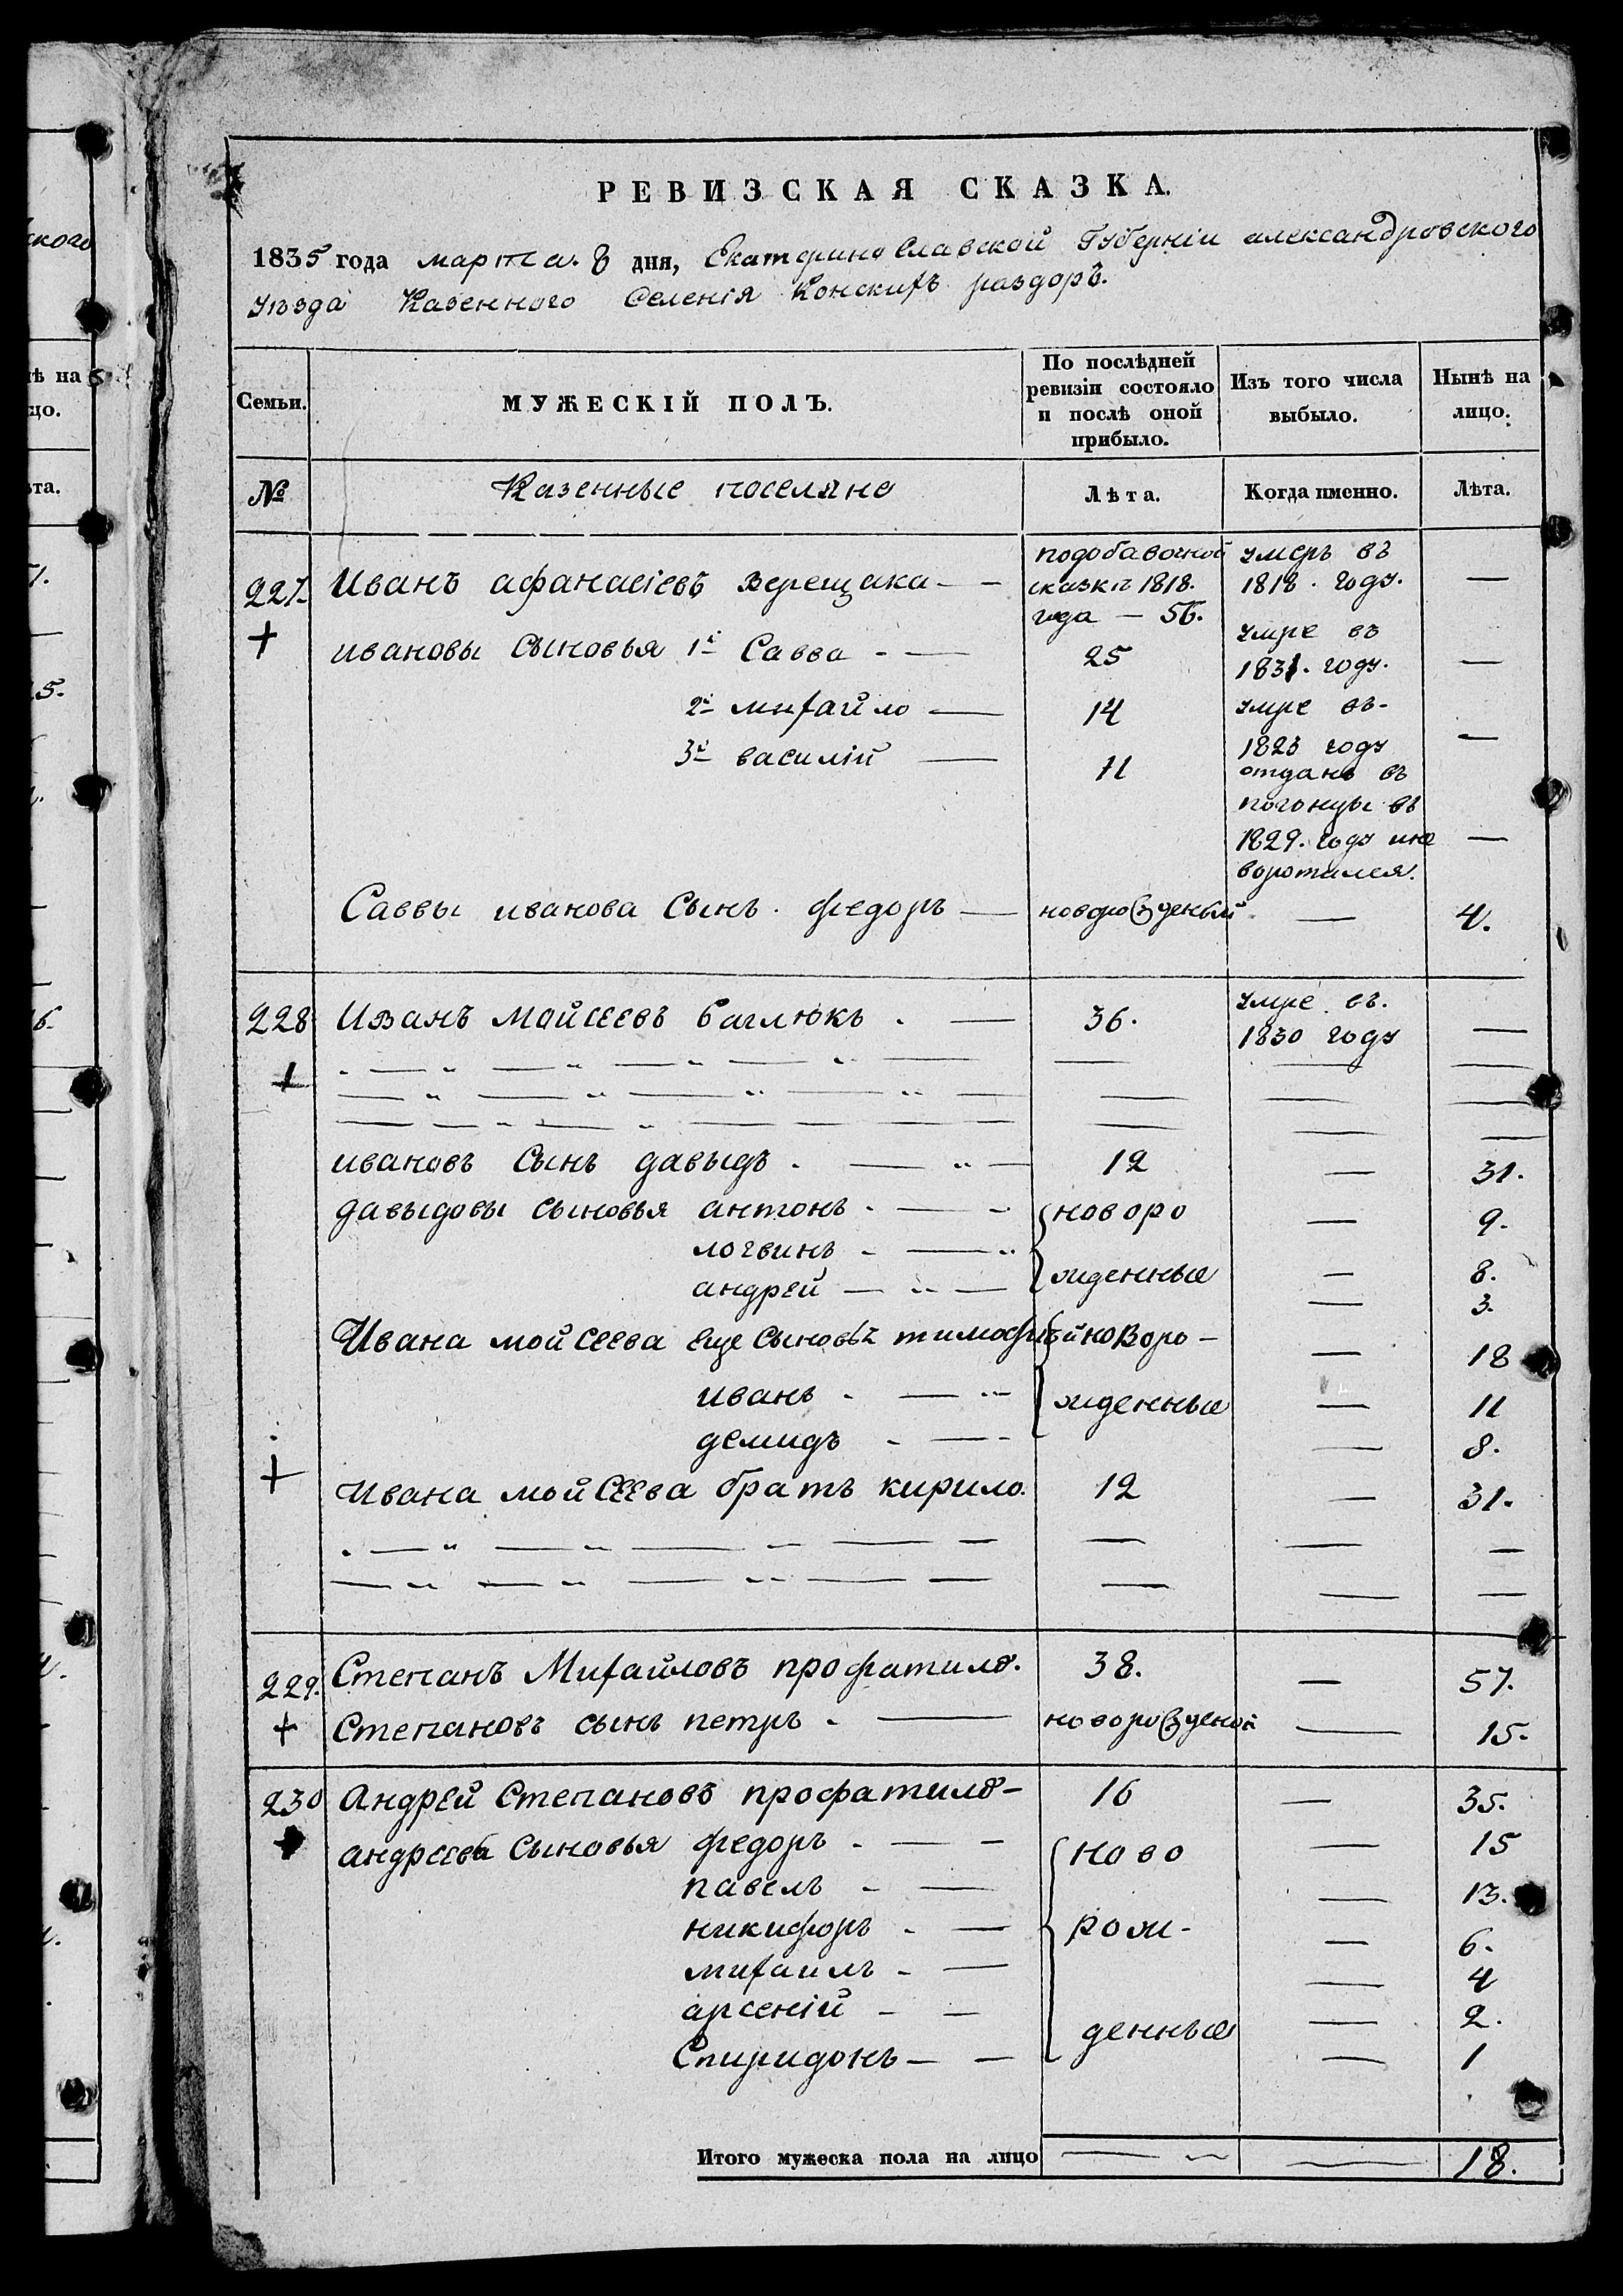 РЕВИЗСКАЯ СКАЗКА.
1835 года марта. 8 дня, Екатеринославской Губерніи александровского
уѣзда Казенного Селенія Конскихъ раздоръ.
Семьи. МУЖЕСКІЙ ПОЛЪ. По послѣдней ревизіи состояло и послѣ оной прибыло. Изъ того числа выбыло. Нынѣ на лицо.
№ Казенные поселяне Лѣта. Когда именно. Лѣта.
227. Иванъ афанасіевъ Верещака — подобавочной сказкѣ 1818. года — 56. умеръ въ 1818. году. —
ивановы сыновья 1й Савва — 25 умре въ 1831. году. —
2й михайло — 14 умре въ 1823 году —
3й василій — 11 отданъ въ погонцы въ 1829. году ине воротился. —
Саввы иванова Сынъ. федоръ — новорожденый — 4.
228 Иванъ Мойсеевъ баглюкъ. — 36. умре въ. 1830 году —
ивановъ Сынъ давыдъ. — 12 — 31.
давыдовы сыновья антонъ. — новоро — 9.
логвинъ — — 8.
андрей — жденные — 3.
Ивана мойсеева еще сыновья тимофѣй новоро — — 18
иванъ. — жденные — 11
демидъ — — 8.
Ивана мойсеева братъ кирило. 12 — 31.
229. Степанъ Михайловъ профатило. 38. — 57.
Степановъ сынъ петръ. — новорожденой — 15.
230 Андрей Степановъ профатило — 16 — 35.
андреевы сыновья федоръ. — ново — 15
павелъ — — 13.
никифоръ — рож- — 6.
михаилъ — — 4
арсеній — — 2.
Спиридонъ — денные — 1
Итого мужеска пола на лицо — — 18.